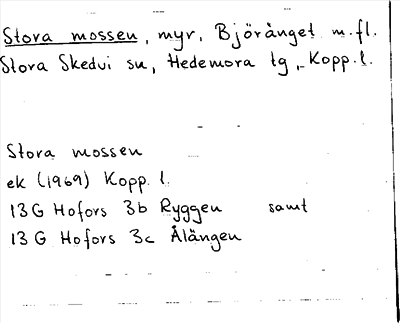 Stora mossen, myr, Björänget m.fl.
Stora Skedvi sn, Hedemora tg, Kopp.l.
Stora mossen
ek (1969) Kopp. l.
13G Hofors 3b Ryggen samt
13G Hofors 3c Ålängen